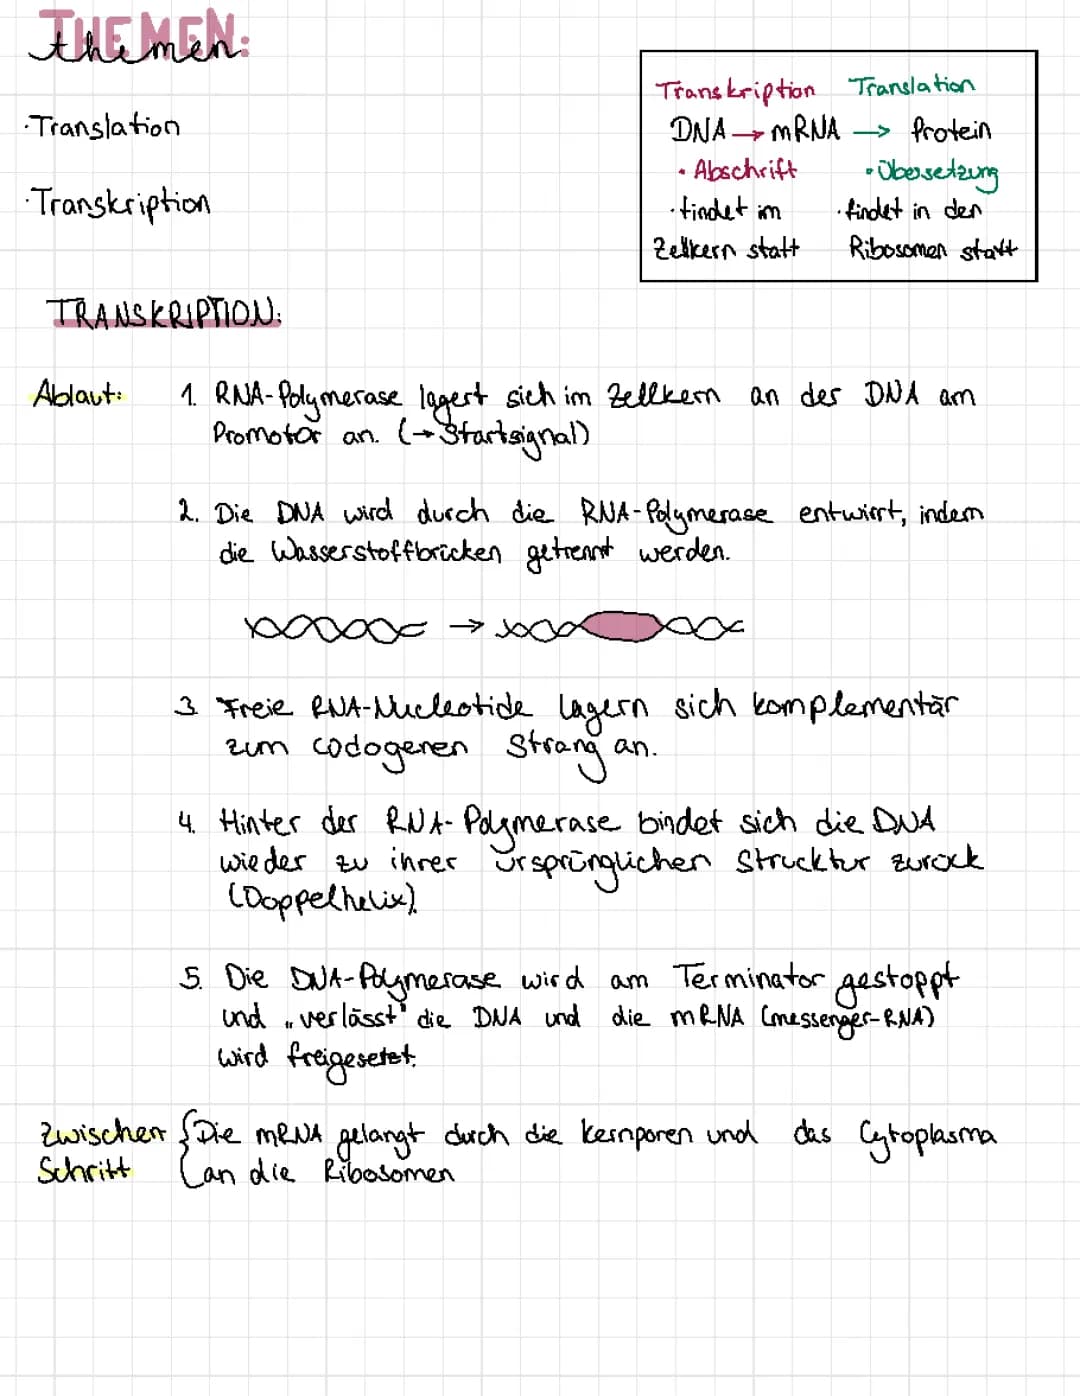 THEMEN:
themen:
·Translation
·Transkription
Transkription Translation
DNA → mRNA → Protein
· Abschrift · Übersetzung
· findet im · findet in den
Zellkern statt Ribosomen statt
TRANSKRIPTION:
Ablauf: 1. RNA-Polymerase lagert sich im Zellkern an der DNA am
Promotor an. (→ Startsignal)
2. Die DNA wird durch die RNA-Polymerase entwirrt, indem
die Wasserstoffbrücken getrennt werden.
→
3 Freie RNA-Nucleotide lagern sich komplementär
zum codogenen Strang an.
4. Hinter der RNA-Polymerase bindet sich die DNA
wieder zu ihrer ursprünglichen Strucktur zurück
(Doppelhelix).
5. Die DNA-Polymerase wird am Terminator gestoppt
und „verlässt" die DNA und die mRNA (messenger-RNA)
wird freigesetzt.
Zwischen {Die mRNA gelangt durch die Kernporen und das Cytoplasma
Schritt an die Ribosomen